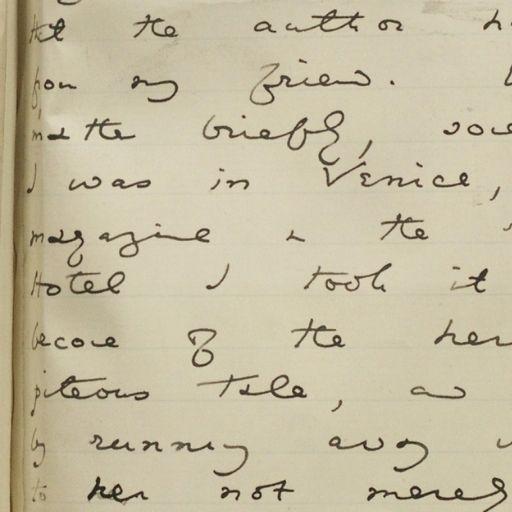 that the author
from my friend.
matter briefly,
I was in Venice,
magazine in the
Hotel I took it
become of the her
piteous Tale, and
by running away
to her not merely